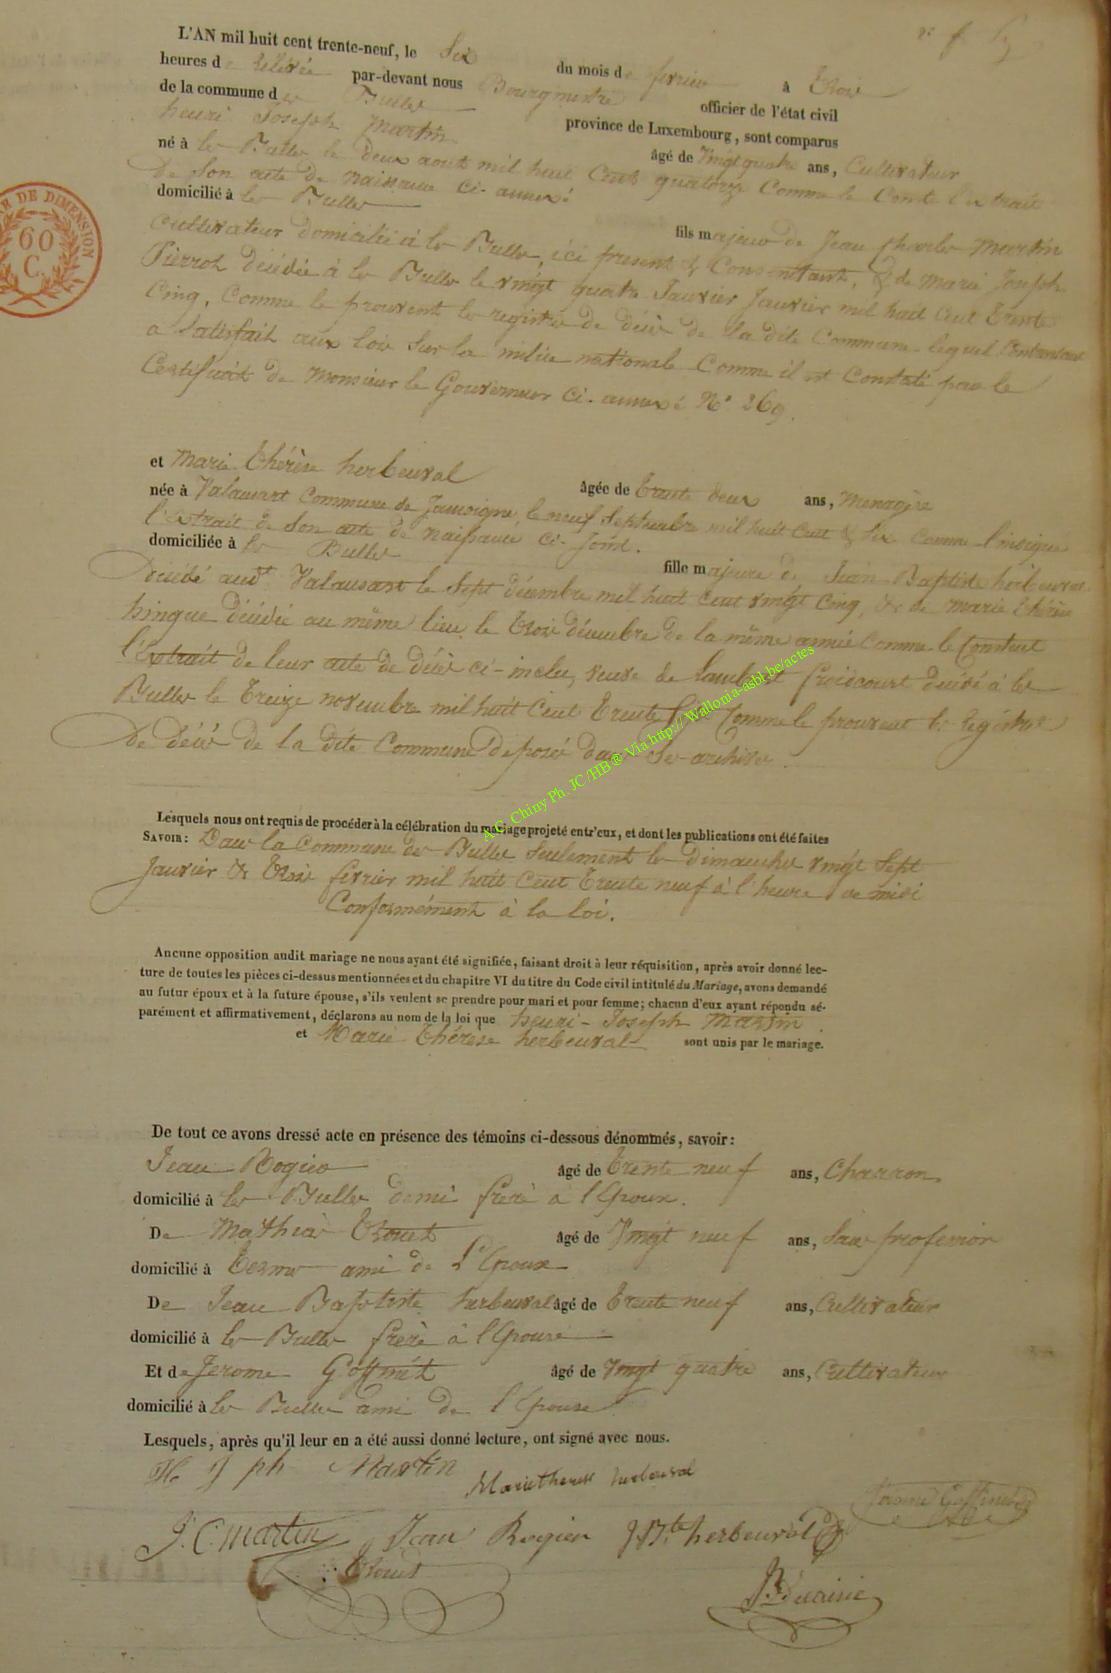 L'AN mil huit cent trente-neuf, le Six du mois de fevrier à trois
heures de relévée par-devant nous Bourgmestre officier de l'état civil
de la commune de Bulles province de Luxembourg, sont comparus
henri Joseph Martin âgé de Vingt quatre ans, Cultivateur
né à les Bulles le deux aout mil huit Cent quatorze Comme le Constate l'extrait
de Son acte de naissance ci-annexé
domicilié à les Bulles fils majeur de Jean Charles Martin
Cultivateur domicilié à les Bulles, ici present & Consentant, & de Marie Joseph
Pierrot décédée à les Bulles le vingt quatre Janvier Janvier mil huit Cent trente
Cinq, Comme le prouvent les registres de décès de la dite Commune lequel Contractant
a Satisfait aux lois Sur la milice nationale Comme il est Constaté par le
Certificat de Monsieur le Gouverneur Ci-annexé N° 269.
et Marie Thérèse herbeuval âgée de trente deux ans, Menagère
née à Valansart Commune de Jamoigne, le neuf Septembre mil huit Cent & Six Comme l'
l'Extrait de Son acte de naissance Ci-Joint.
domiciliée à les Bulles fille majeure de Jean Baptiste herbeuval
décédé audt Valansart le Sept décembre mil huit Cent vingt Cinq, & de Marie thérèse
hingue décédée au même lieu le trois décembre de la même année Comme le Constent
l'Extrait de leur acte de décès ci-inclu, veuve de Lambert froidcourt décédé à les
Bulles le treize novembre mil huit Cent trente Comme le prouvent les registres
de décès de la dite Commune deposé dans Ses archives.
Lesquels nous ont requis de procéder à la célébration du mariage projeté entr'eux, et dont les publications ont été faites
SAVOIR: Dans la Commune de Bulles Seulement les dimanches vingt Sept
Janvier & trois fevrier mil huit Cent trente neuf à l'heure de midi
Conformément à la loi.
Ancune opposition audit mariage ne nous ayant été signifiée, faisant droit à leur réquisition, après avoir donné lec-
ture de toutes les pièces ci-dessus mentionnées et du chapitre VI du titre du Code civil intitulé du Mariage, avons demandé
au futur époux et à la future épouse, s'ils veulent se prendre pour mari et pour femme; chacun d'eux ayant répondu sé-
parément et affirmativement, déclarons au nom de la loi que henri-Joseph Martin
et Marie Thérèse herbeuval sont unis par le mariage.
De tout ce avons dressé acte en présence des témoins ci-dessous dénommés, savoir:
Jean Rogier âgé de trente neuf ans, Charron
domicilié à les Bulles demi frere à l'Epoux.
De Mathias âgé de Vingt neuf ans, Sans profession
domicilié à Termes ami de l'Epoux
De Jean Baptiste herbeuval âgé de trente neuf ans, Cultivateur
domicilié à les Bulles frere à l'Epouse
Et de Jerome Goffinet âgé de vingt quatre ans, Cultivateur
domicilié à les Bulles ami de l'Epouse
Lesquels, après qu'il leur en a été aussi donné lecture, ont signé avec nous.
H J ph Martin Marie therese herbeuval
Jerome Goffinet
J. C. Martin Jean Rogier J Bte herbeuval
TIMBRE DE DIMENSION
60
C.
A.C. Chiny Ph. JC/HB® Via http:// Wallonia-asbl.be/actes